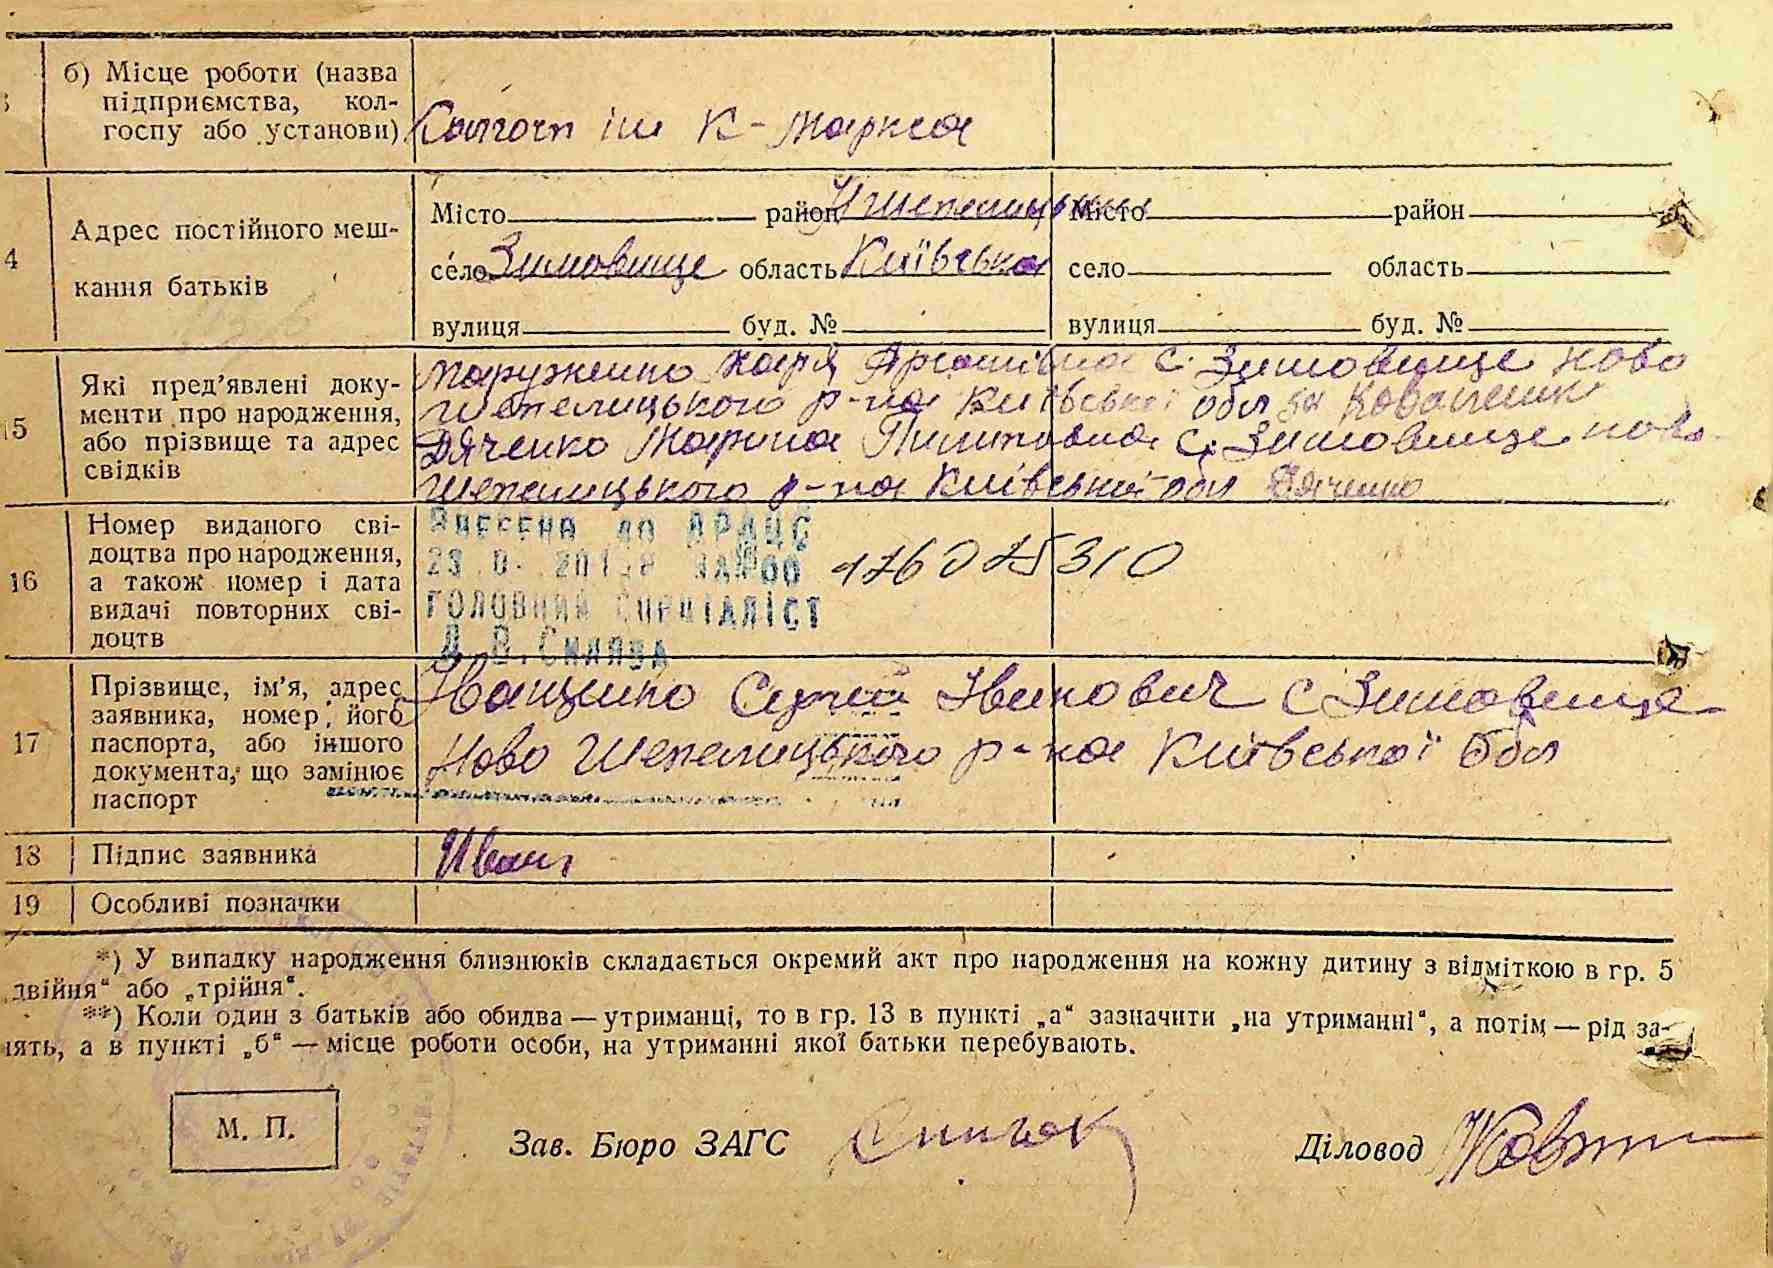 б) Місце роботи (назва
підприємства, кол-
госпу або установи)
Колгосп ім К-Маркса
4
Адрес постійного меш-
кання батьків
Місто район Н Шепелицький Місто район
село Зимовище область Київська село область
вулиця буд. № вулиця буд. №
15
Які пред'явлені доку-
менти про народження,
або прізвище та адрес
свідків
Марія с. Зимовище ново
Шепелицького р-на Київської обл
Дяченко Марина Пилиповна с. Зимовище ново
Шепелицького р-на Київської обл Дяченко
16
Номер виданого сві-
доцтва про народження,
а також номер і дата
видачі повторних сві-
доцтв
Внесена до ДРАЦС
ГОЛОВНИЙ СПЕЦІАЛІСТ
17
Прізвище, ім'я, адрес
заявника, номер його
паспорта, або іншого
документа, що замінює
паспорт
Іващенко Сергій Іванович с Зимовище
Ново Шепелицького р-на Київської обл
18 Підпис заявника
Иващ
19 Особливі позначки
*) У випадку народження близнюків складається окремий акт про народження на кожну дитину з відміткою в гр. 5
„двійня“ або „трійня“.
**) Коли один з батьків або обидва — утриманці, то в гр. 13 в пункті „а“ зазначити „на утриманні“, а потім — рід за-
нять, а в пункті „б“ — місце роботи особи, на утриманні якої батьки перебувають.
М. П.
Зав. Бюро ЗАГС
Діловод